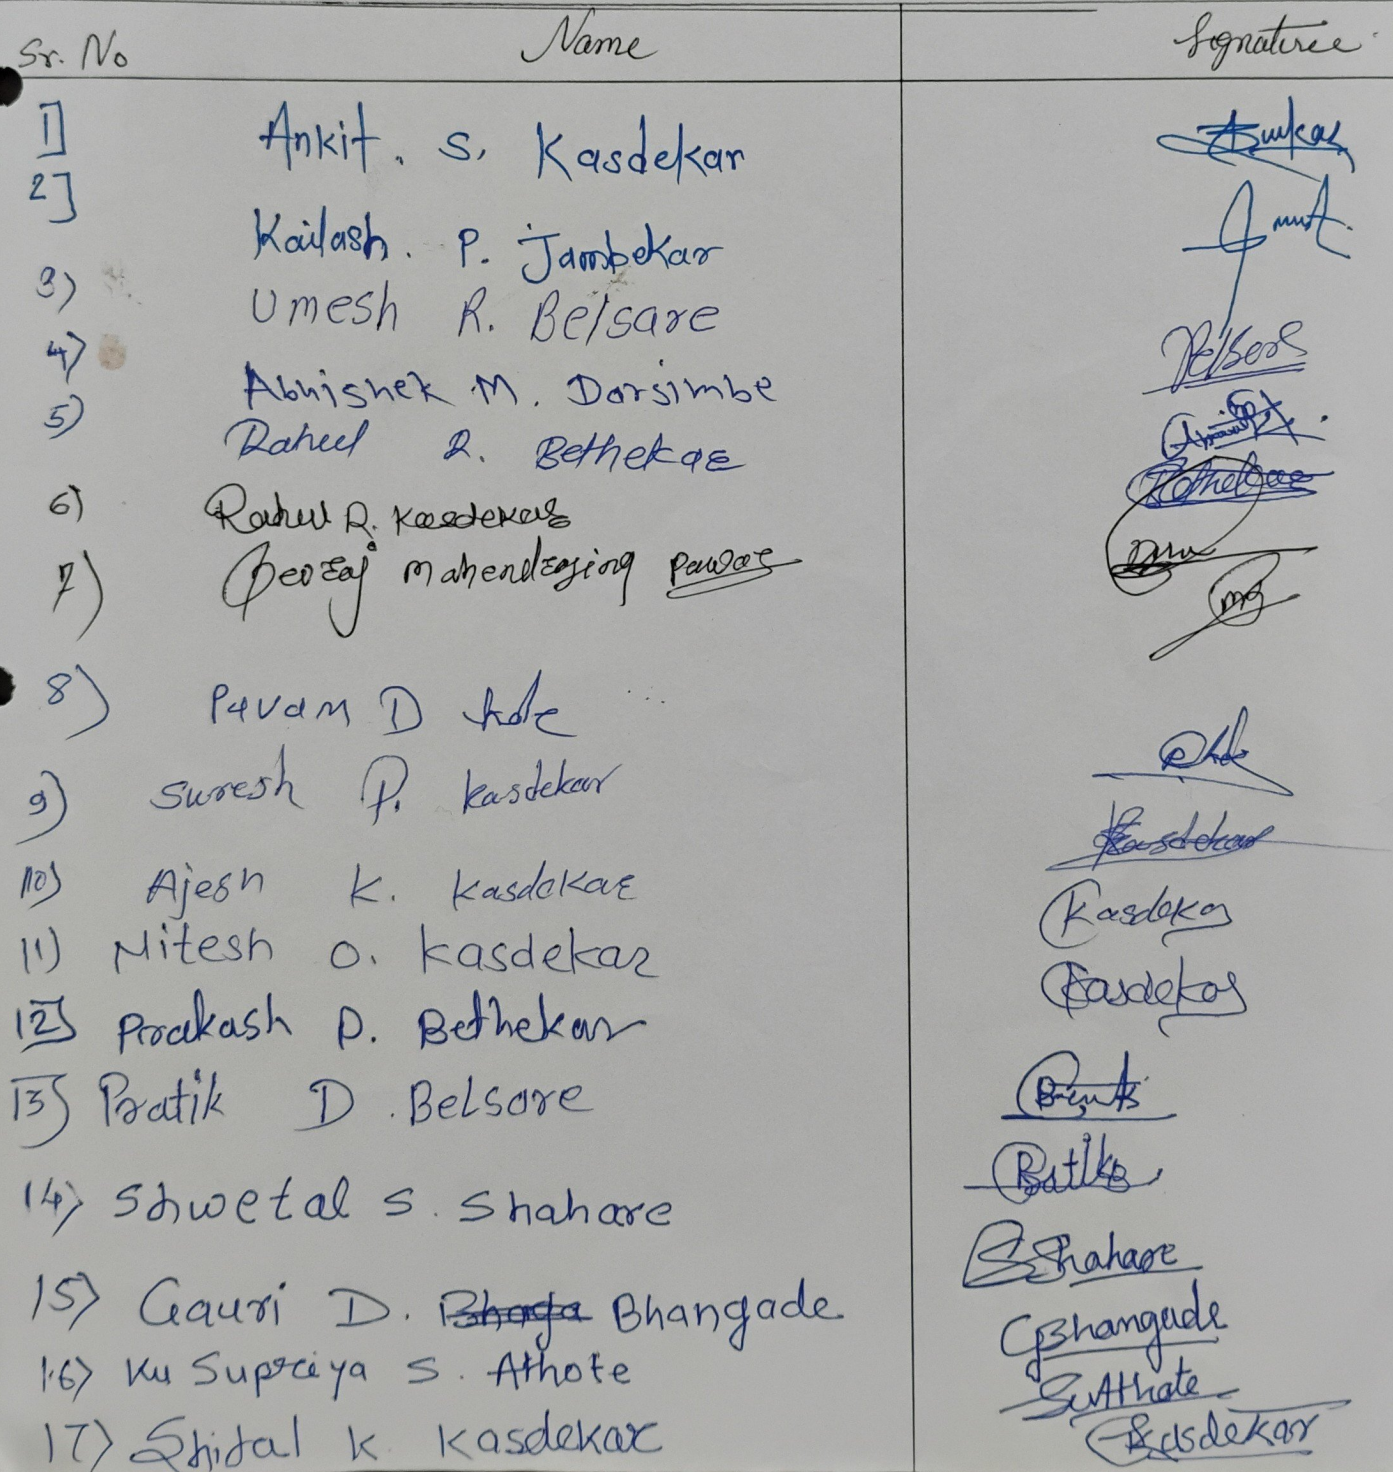 Sr. No Name Signature
1] Ankit. S. Kasdekar
2] Kailash. P. Jambekar
3) Umesh R. Belsare
4) Abhishek M. Dorsimbe
5) Rahul R. Bethekar
6) Rahul R. Kasdekar
7) Devraj Mahendrasing Pawar
8) Pavan D
9) Suresh P. Kasdekar Kasdekar
10) Ajesh K. Kasdekar Kasdekar
11) Nitesh O. Kasdekar Kasdekar
12] Prakash D. Bethekar
13] Pratik D. Belsare
14) Shwetal S. Shahare SShahare
15) Gauri D. Bhangade GBhangade
16) Ku Supriya S. Athote
17) Shital K Kasdekar Kasdekar